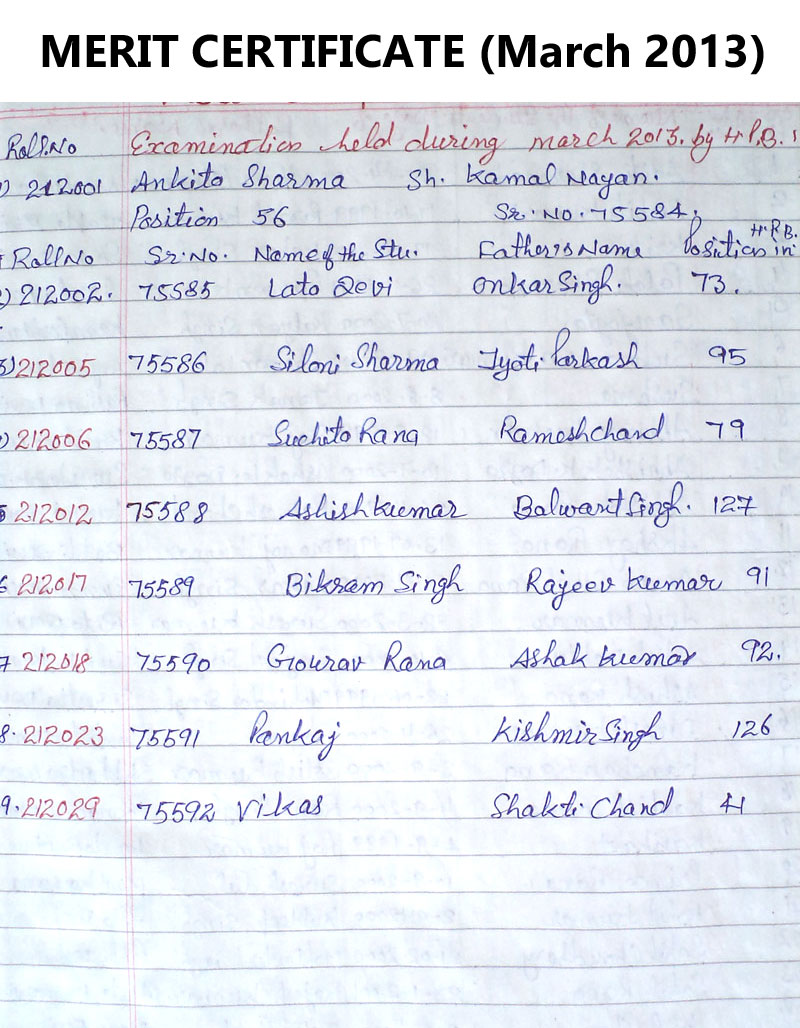 MERIT CERTIFICATE (March 2013)
Roll.No Examination held during march 2013. by H.P.B.
1) 212001 Ankita Sharma Sh. Kamal Nayan.
Position 56 Sr. No. 75584,
Roll No Sr. No. Name of the Stu. Father's Name Position in H.P.B.
2) 212002. 75585 Lata Devi Onkar Singh. 73.
3) 212005 75586 Siloni Sharma Jyoti Parkash 95
212006 75587 Suchita Rana Ramesh chand 79
5 212012 75588 Ashish kumar Balwant Singh. 127
6 212017 75589 Bikram Singh Rajeev kumar 91
7 212018 75590 Gourav Rana Ashak kumar 92.
8. 212023 75591 Pankaj Kishmir Singh 126
9. 212029 75592 Vikas Shakti Chand 41